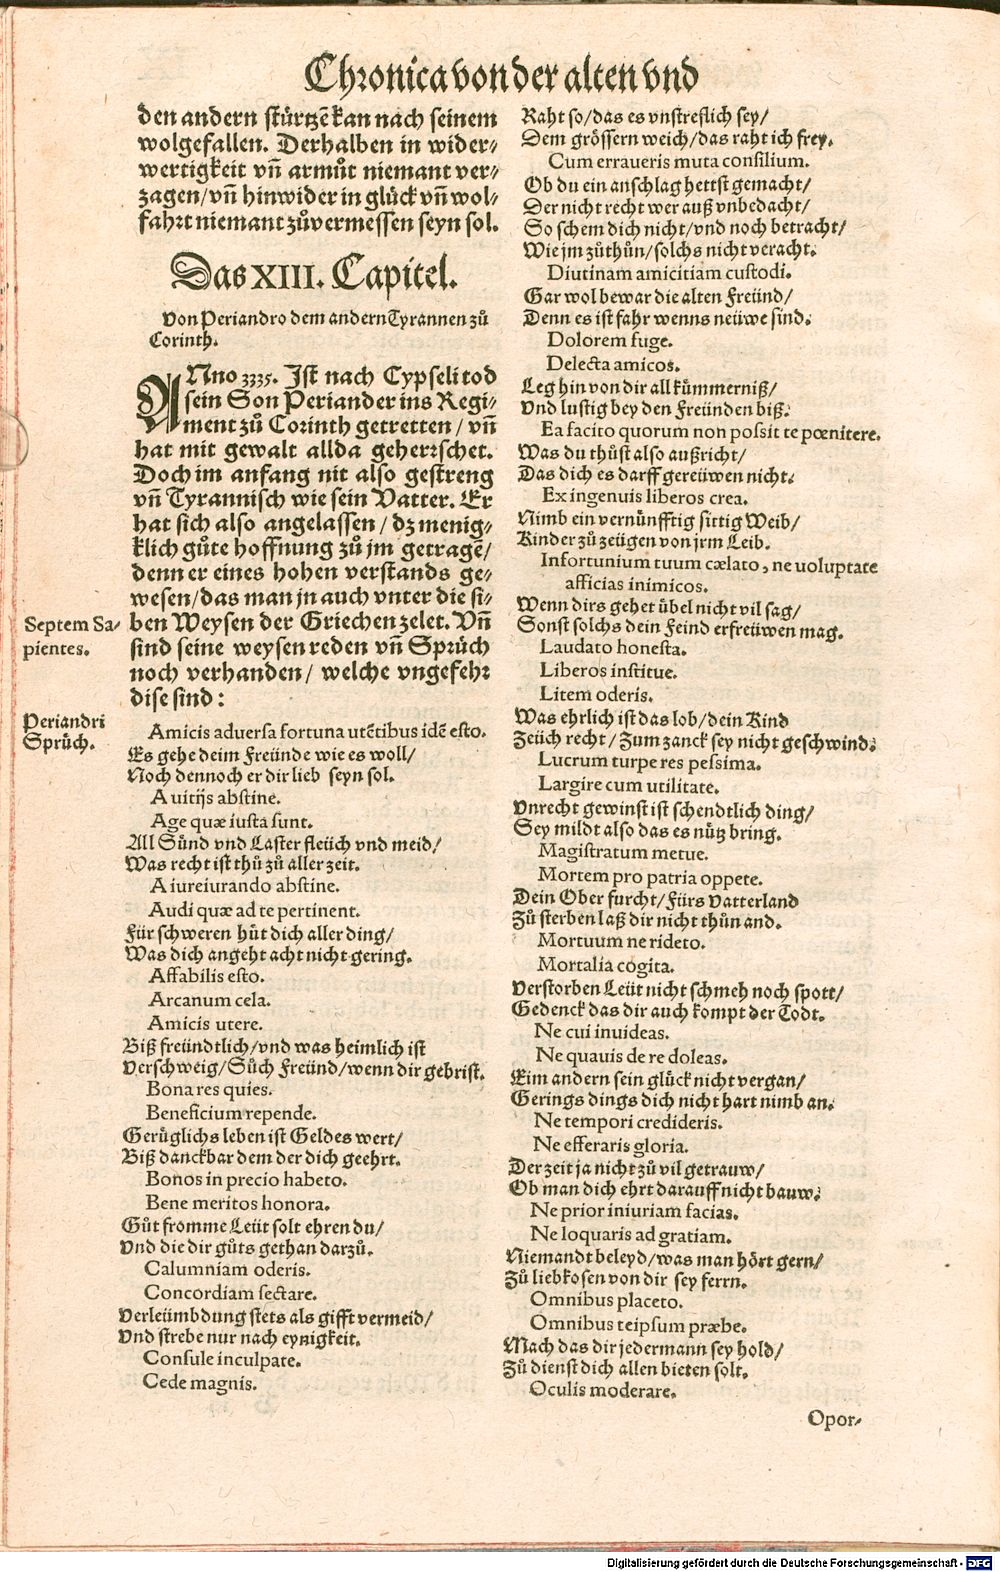 Chronica von der alten vnd
den andern stürtzẽ kan nach seinem
wolgefallen. Derhalben in wider⸗
wertigkeit vñ armůt niemant ver⸗
zagen/vñ hinwider in glück vñ wol⸗
fahrt niemant zůvermessen seyn sol.
Das XIII. Capitel.
Von Periandro dem andern Tyrannen zů
Corinth.
ANno 3335. Ist nach Cypseli tod
sein Son Periander ins Regi⸗
ment zů Corinth getretten/ vñ
hat mit gewalt allda geherrschet.
Doch im anfang nit also gestreng
vñ Tyrannisch wie sein Vatter. Er
hat sich also angelassen/ dz menig⸗
klich gůte hoffnung zů jm getragẽ/
denn er eines hohen verstands ge⸗
wesen/das man jn auch vnter die si⸗
Septem Sa-
pientes.
ben Weysen der Griechen zelet. Vñ
sind seine weysen reden vñ Sprüch
noch verhanden/ welche vngefehr
dise sind:
Periandri
Sprüch.
Amicis aduersa fortuna utẽtibus idẽ esto.
Es gehe deim Freünde wie es woll/
Noch dennoch er dir lieb seyn sol.
A uitijs abstine.
Age quæ iusta sunt.
All Sünd vnd Laster fleüch vnd meid/
Was recht ist thů zů aller zeit.
A iureiurando abstine.
Audi quæ ad te pertinent.
Für schweren hůt dich aller ding/
Was dich angeht acht nicht gering.
Affabilis esto.
Arcanum cela.
Amicis utere.
Biß freündtlich/vnd was heimlich ist
Verschweig/Sůch Freünd/wenn dir gebrist.
Bona res quies.
Beneficium repende.
Gerüglichs leben ist Geldes wert/
Biß danckbar dem der dich geehrt.
Bonos in precio habeto.
Bene meritos honora.
Gůt fromme Leüt solt ehren du/
Vnd die dir gůts gethan darzů.
Calumniam oderis.
Concordiam sectare.
Verleümbdung stets als gifft vermeid/
Vnd strebe nur nach eynigkeit.
Consule inculpate.
Cede magnis.
Raht so/das es vnstreflich sey/
Dem grössern weich/das raht ich frey.
Cum erraueris muta consilium.
Ob du ein anschlag hettst gemacht/
Der nicht recht wer auß vnbedacht/
So schem dich nicht/vnd noch betracht/
Wie jm zůthůn/solchs nicht veracht.
Diutinam amicitiam custodi.
Gar wol bewar die alten Freünd/
Denn es ist fahr wenns neüwe sind.
Dolorem fuge.
Delecta amicos.
Leg hin von dir all kümmerniß/
Vnd lustig bey den Freünden biß.
Ea facito quorum non possit te pœnitere.
Was du thůst also außricht/
Das dich es darff gereüwen nicht.
Ex ingenuis liberos crea.
Nimb ein vernünfftig sittig Weib/
Kinder zů zeügen von jrm Leib.
Infortunium tuum cælato, ne uoluptate
afficias inimicos.
Wenn dirs gehet übel nicht vil sag/
Sonst solchs dein Feind erfreüwen mag.
Laudato honesta.
Liberos institue.
Litem oderis.
Was ehrlich ist das lob/dein Kind
Zeüch recht/ Zum zanck sey nicht geschwind.
Lucrum turpe res pessima.
Largire cum utilitate.
Vnrecht gewinst ist schendtlich ding/
Sey mildt also das es nütz bring.
Magistratum metue.
Mortem pro patria oppete.
Dein Ober furcht/ Fürs Vatterland
Zů sterben laß dir nicht thůn and.
Mortuum ne rideto.
Mortalia cogita.
Verstorben Leüt nicht schmeh noch spott/
Gedenck das dir auch kompt der Todt.
Ne cui inuideas.
Ne quauis de re doleas.
Eim andern sein glück nicht vergan/
Gerings dings dich nicht hart nimb an.
Ne tempori credideris.
Ne efferaris gloria.
Der zeit ja nicht zů vil getrauw/
Ob man dich ehrt darauff nicht bauw.
Ne prior iniuriam facias.
Ne loquaris ad gratiam.
Niemandt beleyd/was man hört gern/
Zů liebkosen von dir sey ferrn.
Omnibus placeto.
Omnibus teipsum præbe.
Mach das dir jedermann sey hold/
Zů dienst dich allen bieten solt.
Oculis moderare.
Opor-
Digitalisierung gefördert durch die Deutsche Forschungsgemeinschaft - DFG